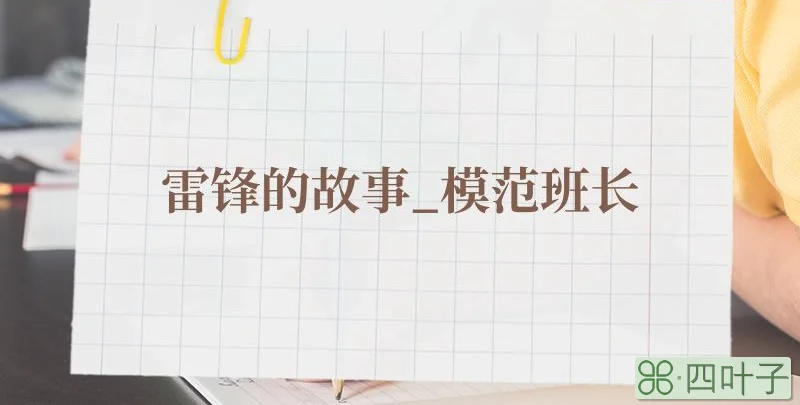 雷锋的故事_模范班长
四叶子